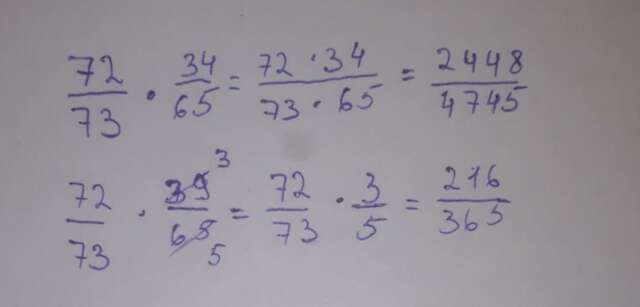 72/73 · 34/65 = 72 · 34/73 · 65 = 2448/4745
72/73 · 39/65 3/5 = 72/73 · 3/5 = 216/365